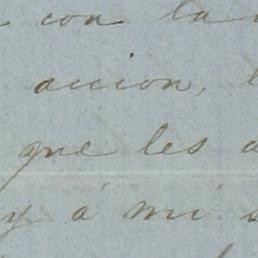 con la
accion,
que les a
y á mi